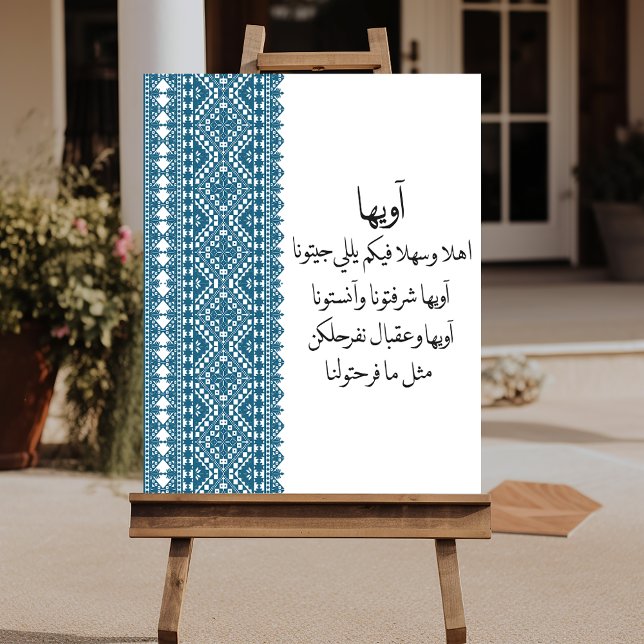 آويها
اهلا وسهلا فيكم يللي جيتونا
آويها شرفتونا وآنستونا
آويها وعقبال نفرحلكن
مثل ما فرحتولنا